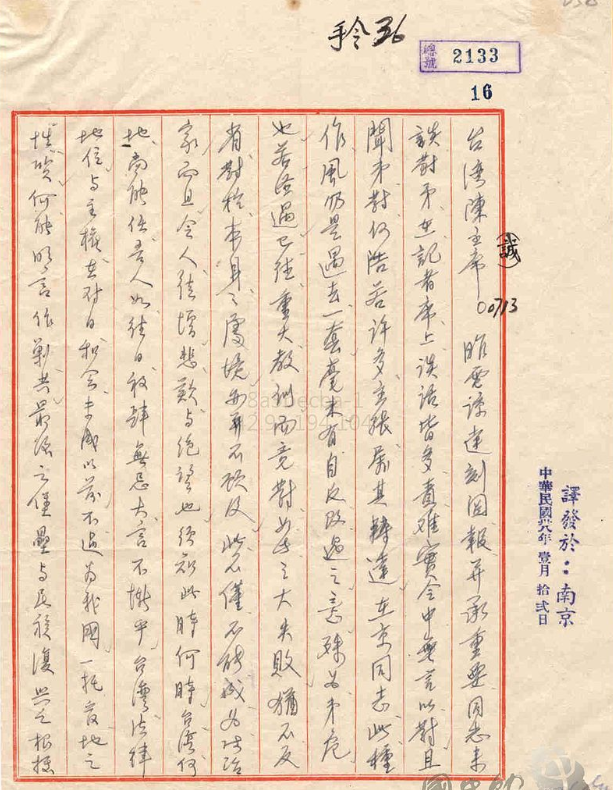 手令36
總號 2133
16
譯發於：南京
中華民國卅八年 壹月 拾弍日
台湾陳主席 (誠) 00713 昨電諒達刻因報并承重要同志来
談對弟在記者席上談话皆多責难實令中無言以對且
聞弟對何浩若许多主張属其轉達在京同志此種
作風仍是過去一套毫未有自反改過之意殊为弟危
也若经過已往重大教訓而竟對如此之大失敗猶不反
省對於本身之處境亦再不顧及此不僅不能成为政治
家而且令人徒增悲歎与绝望也须知此時何時台湾何
地尚能任吾人如往日放肆無忌大言不慚乎台湾法律
地位与主權在對日和会未成以前不過为我國一托管地之
性质何能明言作剿共最後之堡壘与民族復興之根據